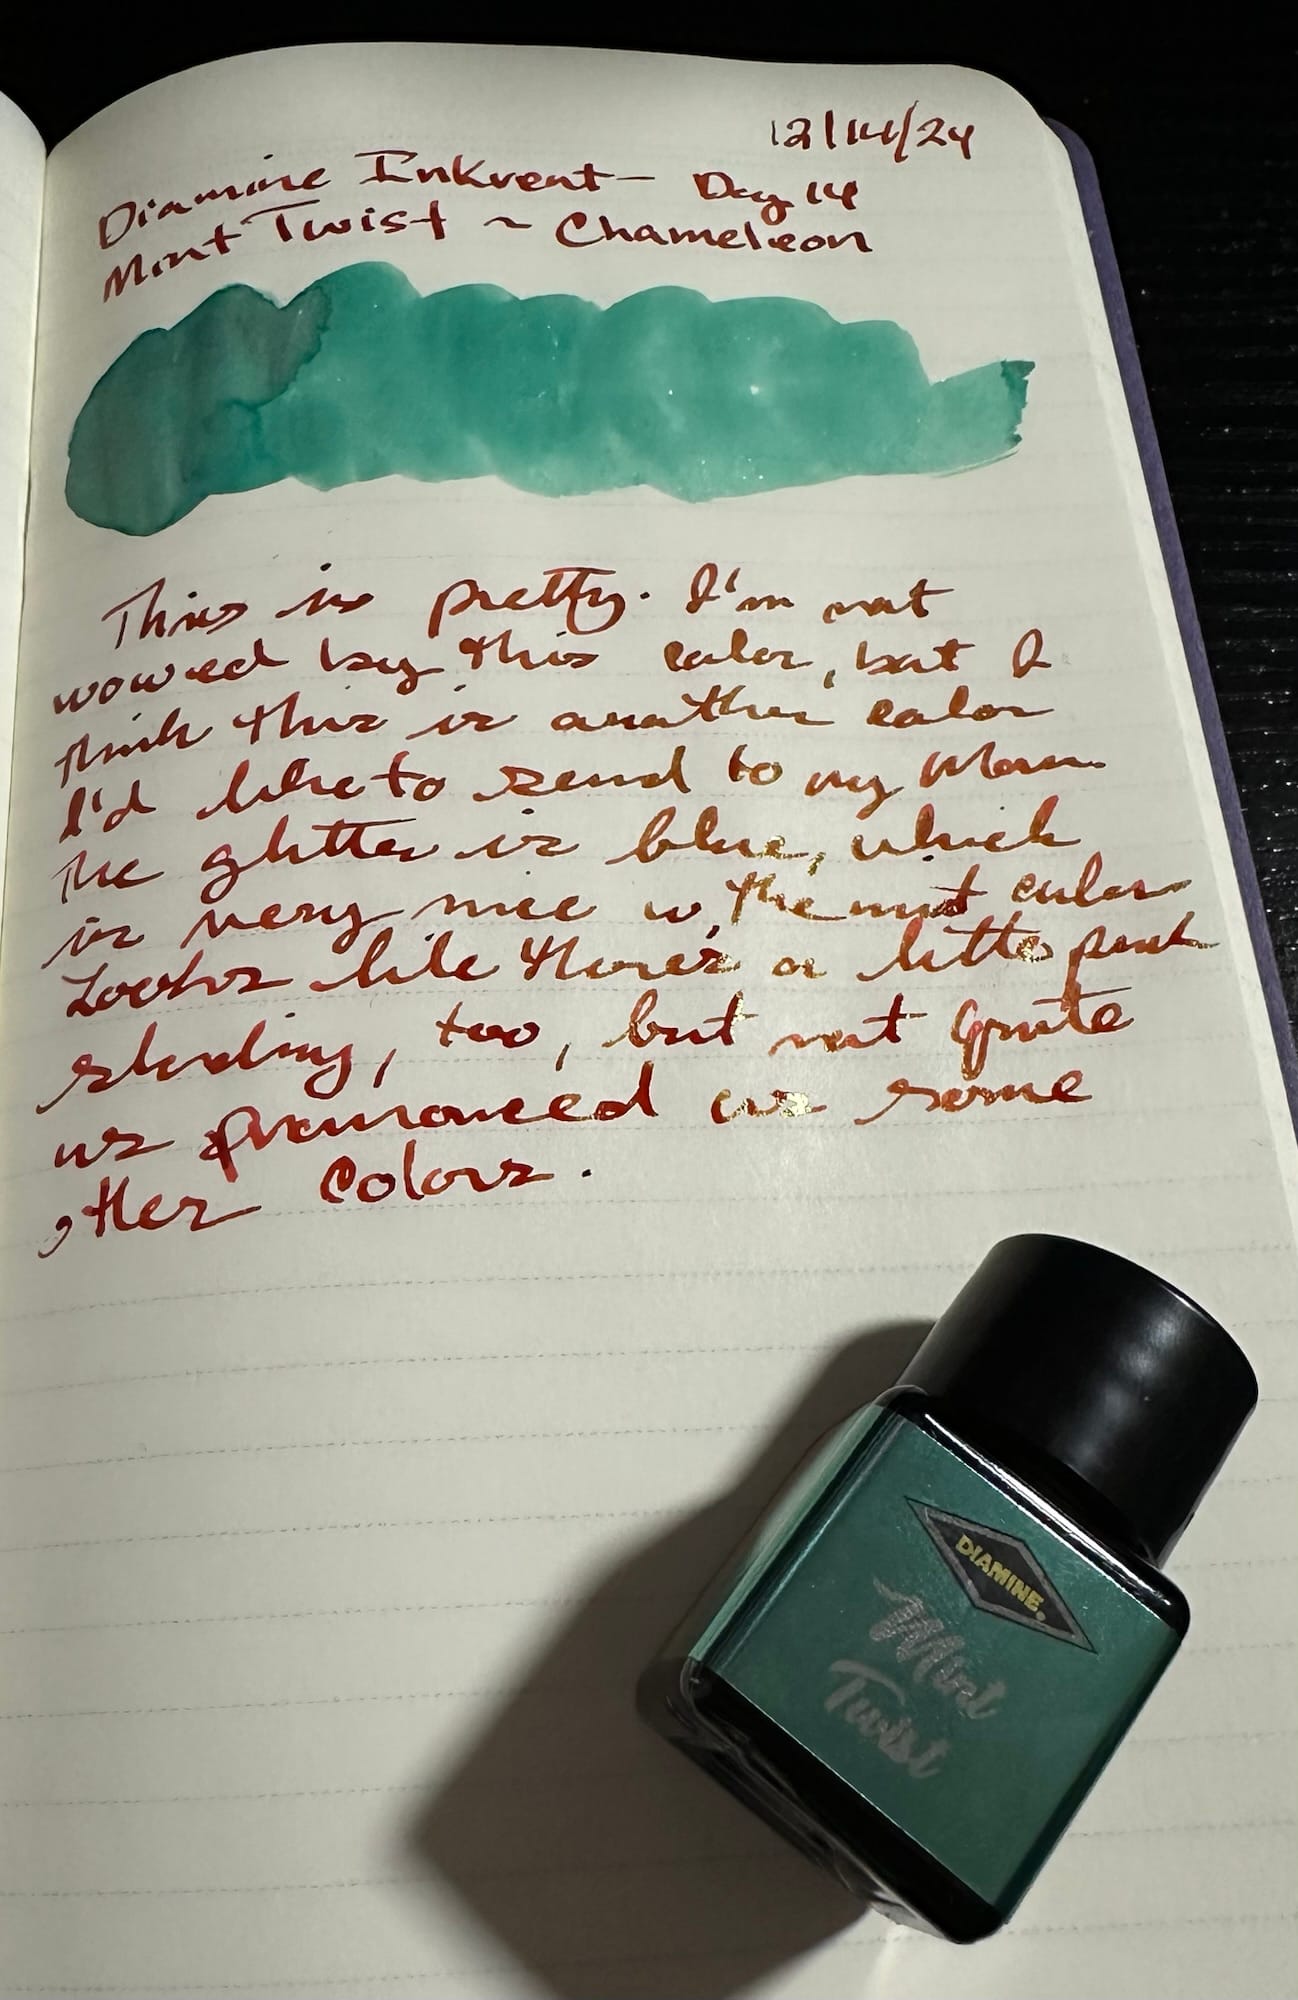 12/14/24
Diamine Inkvent - Day 14
Mint Twist ~ Chameleon
This is pretty. I'm not
wowed by this color, but I
think this is another color
I'd like to send to my Mom.
The glitter is blue, which
is very nice w, the mint color
Looks like there's a little pink
shading, too, but not quite
as pronounced as some
other colors.
DIAMINE.
Mint
Twist